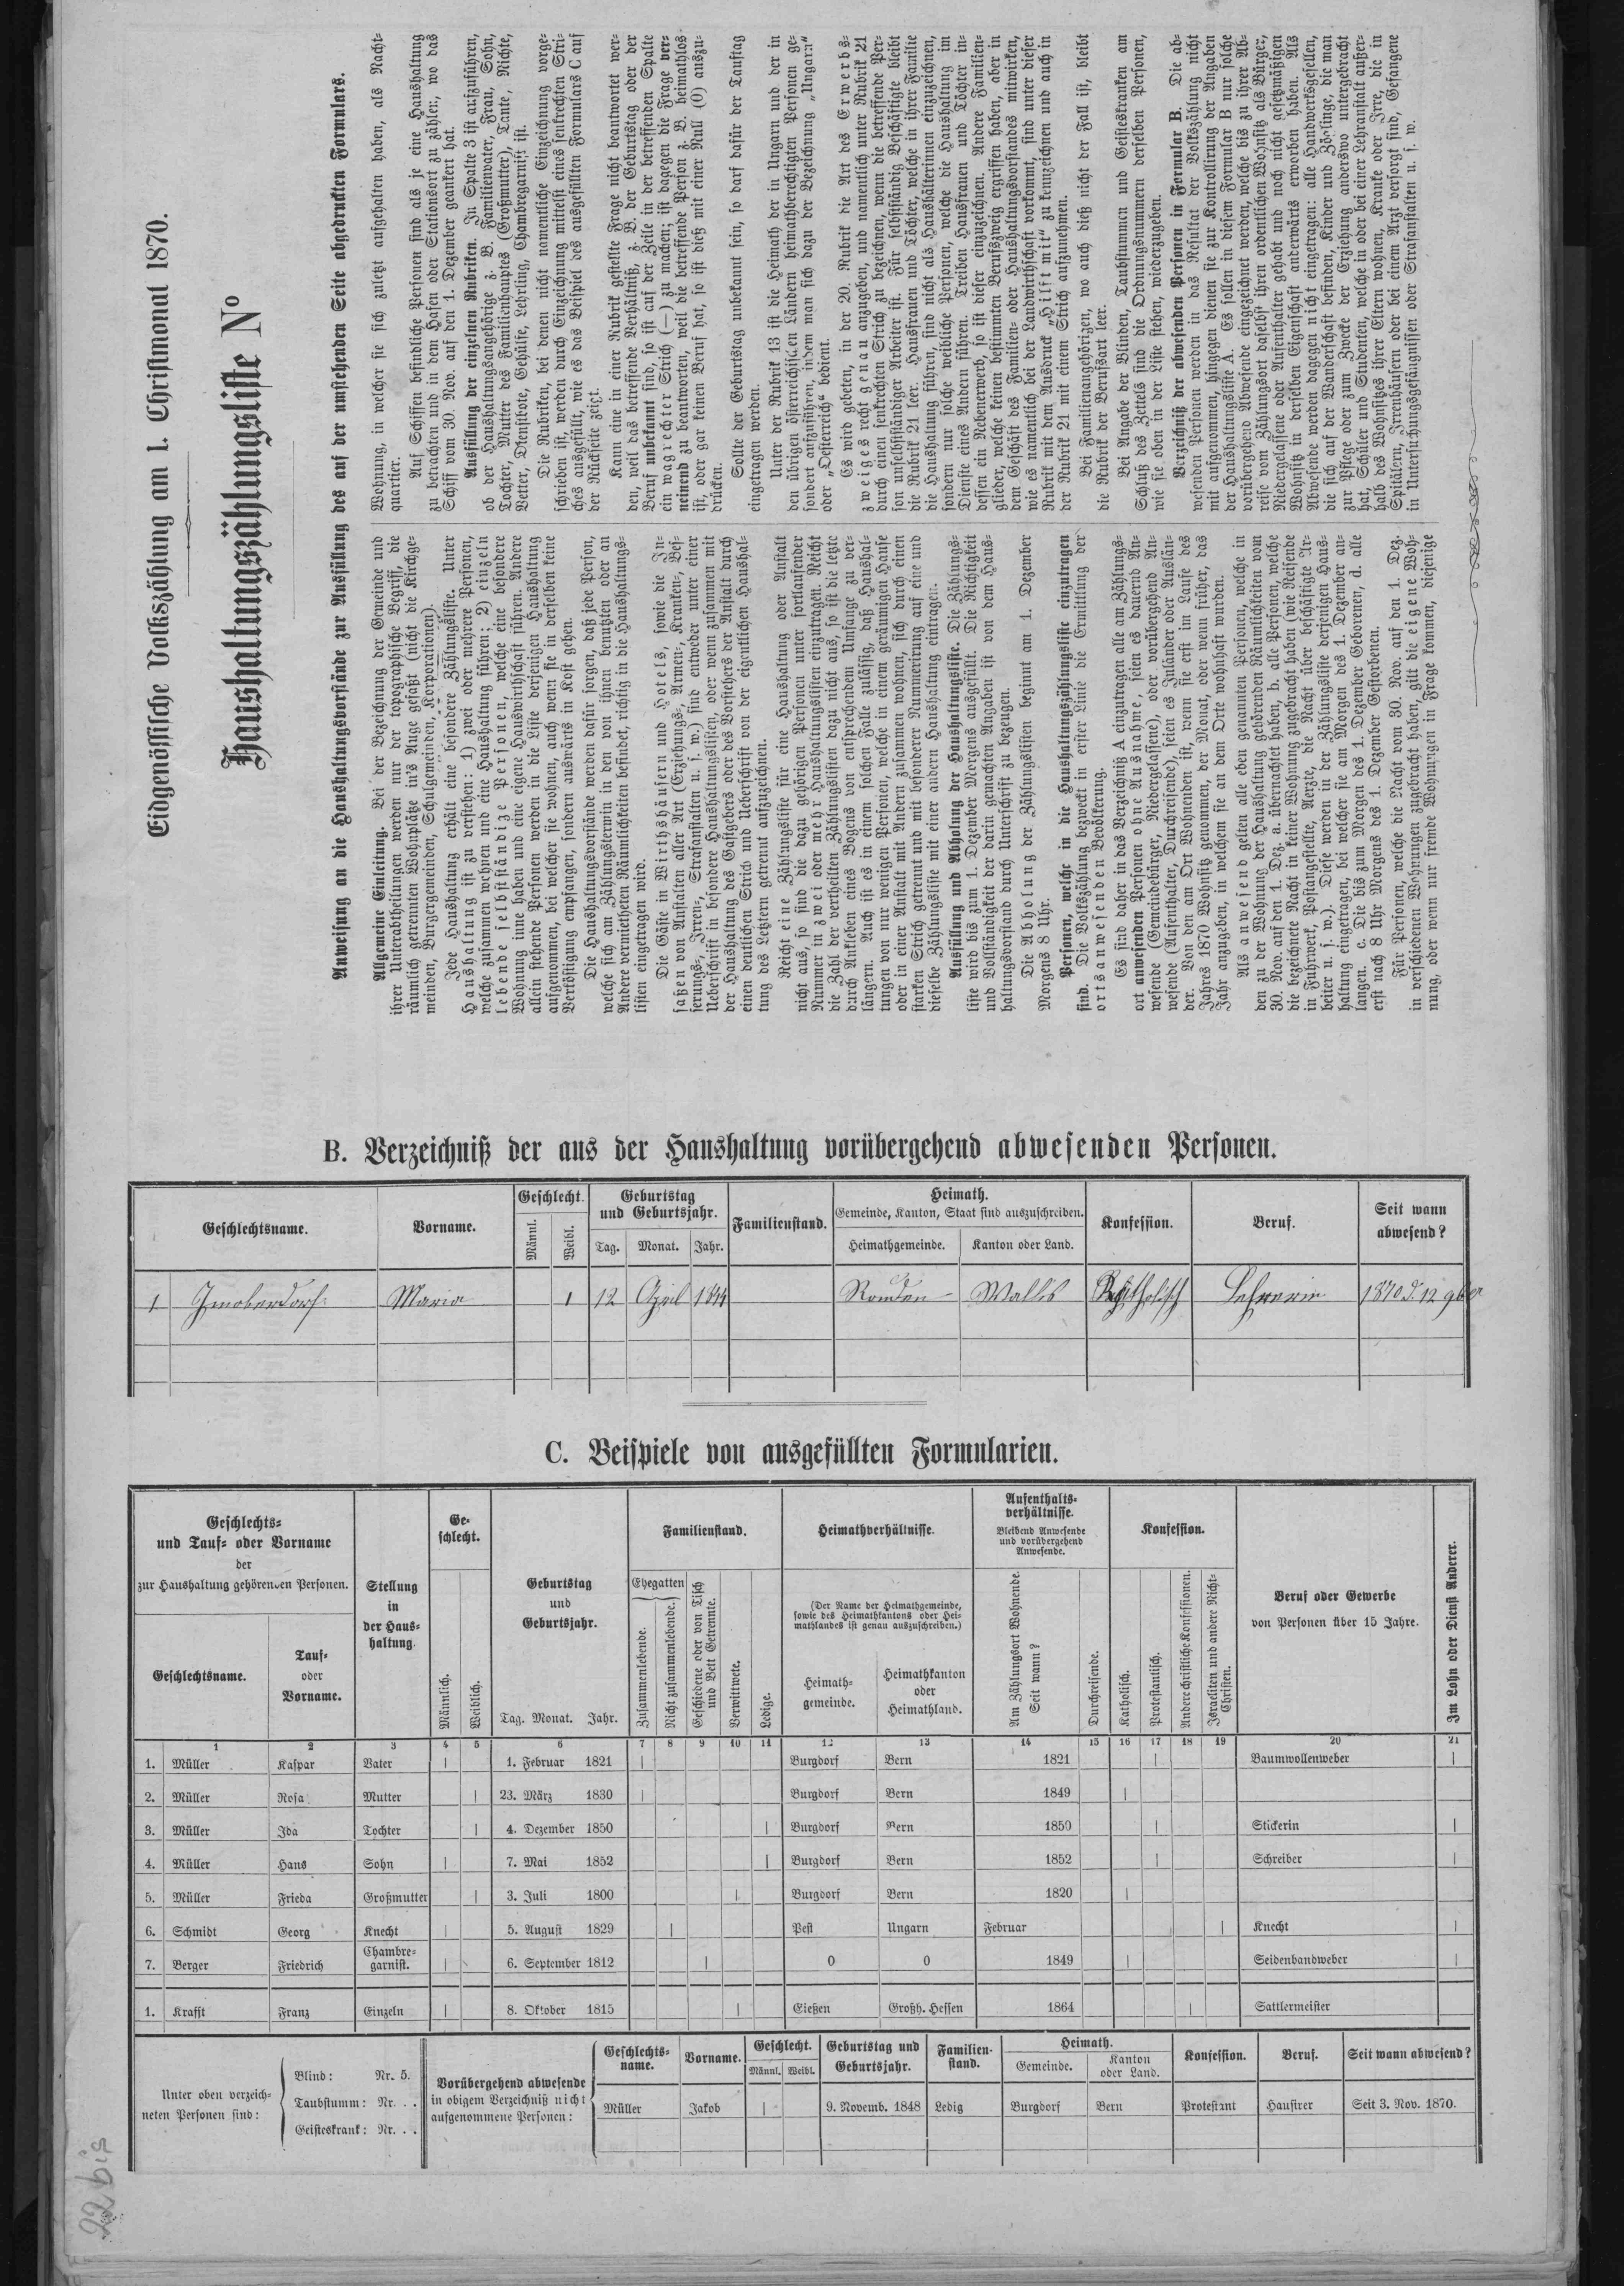 Eidgenössische Volkszählung am 1. Christmonat 1870.
Haushaltungszählungsliste Nº
Anweisung an die Haushaltungsvorstände zur Ausfüllung des auf der umstehenden Seite abgedruckten Formulars.
Allgemeine Einleitung. Bei der Bezeichnung der Gemeinde und
ihrer Unterabtheilungen werden nur der topographische Begriff, die
räumlich getrennten Wohnplätze in's Auge gefaßt (nicht die Kirchge-
meinden, Burgergemeinden, Schulgemeinden, Korporationen).
Jede Haushaltung erhält eine besondere Zählungsliste. Unter
Haushaltung ist zu verstehen: 1) zwei oder mehrere Personen,
welche zusammen wohnen und eine Haushaltung führen; 2) einzeln
lebende selbstständige Personen, welche eine besondere
Wohnung inne haben und eine eigene Hauswirthschaft führen. Andere
allein stehende Personen werden in die Liste derjenigen Haushaltung
aufgenommen, bei welcher sie wohnen, auch wenn sie in derselben keine
Verköstigung empfangen, sondern auswärts in Kost gehen.
Die Haushaltungsvorstände werden dafür sorgen, daß jede Person,
welche sich am Zählungstermin in den von ihnen benutzten oder an
Andere vermietheten Räumlichkeiten befindet, richtig in die Haushaltungs-
listen eingetragen wird.
Die Gäste in Wirthshäusern und Hotels, sowie die In-
saßen von Anstalten aller Art (Erziehungs-, Armen-, Kranken-, Bes-
serungs-, Irren-, Strafanstalten u. s. w.) sind entweder unter einer
Ueberschrift in besondere Haushaltungslisten, oder wenn zusammen mit
der Haushaltung des Gastgebers oder des Vorstehers der Anstalt durch
einen deutlichen Strich und Ueberschrift von der eigentlichen Haushal-
tung des Letztern getrennt aufzuzeichnen.
Reicht eine Zählungsliste für eine Haushaltung oder Anstalt
nicht aus, so sind die dazu gehörigen Personen unter fortlaufender
Nummer in zwei oder mehr Haushaltungslisten einzutragen. Reicht
die Zahl der vertheilten Zählungslisten dazu nicht aus, so ist die letzte
durch Ankleben eines Bogens von entsprechendem Umfange zu ver-
längern. Auch ist es in einem solchen Falle zulässig, daß Haushal-
tungen von nur wenigen Personen, welche in einem geräumigen Hause
oder in einer Anstalt mit Andern zusammen wohnen, sich durch einen
starken Strich getrennt und mit besonderer Nummerirung auf eine und
dieselbe Zählungsliste mit einer andern Haushaltung eintragen.
Ausfüllung und Abholung der Haushaltungsliste. Die Zählungs-
liste wird bis zum 1. Dezember Morgens ausgefüllt. Die Richtigkeit
und Vollständigkeit der darin gemachten Angaben ist von dem Haus-
haltungsvorstand durch Unterschrift zu bezeugen.
Die Abholung der Zählungslisten beginnt am 1. Dezember
Morgens 8 Uhr.
Personen, welche in die Haushaltungszählungsliste einzutragen
sind. Die Volkszählung bezweckt in erster Linie die Ermittlung der
ortsanwesenden Bevölkerung.
Es sind daher in das Verzeichniß A einzutragen alle am Zählungs-
ort anwesenden Personen ohne Ausnahme, seien es dauernd An-
wesende (Gemeindebürger, Niedergelassene), oder vorübergehend An-
wesende (Aufenthalter, Durchreisende), seien es Inländer oder Auslän-
der. Von den am Ort Wohnenden ist, wenn sie erst im Laufe des
Jahres 1870 Wohnsitz genommen, der Monat, oder wenn früher, das
Jahr anzugeben, in welchem sie an dem Orte wohnhaft wurden.
Als anwesend gelten alle eben genannten Personen, welche in
den zu der Wohnung der Haushaltung gehörenden Räumlichkeiten vom
30. Nov. auf den 1. Dez. a. übernachtet haben, b. alle Personen, welche
die bezeichnete Nacht in keiner Wohnung zugebracht haben (wie Reisende
in Fuhrwerk, Postangestellte, Aerzte, die Nacht über beschäftigte Ar-
beiter u. s. w.). Diese werden in der Zählungsliste derjenigen Haus-
haltung eingetragen, bei welcher sie am Morgen des 1. Dezember an-
langen. c. Die bis zum Morgen des 1. Dezember Geborenen, d. alle
erst nach 8 Uhr Morgens des 1. Dezember Gestorbenen.
Für Personen, welche die Nacht vom 30. Nov. auf den 1. Dez.
in verschiedenen Wohnungen zugebracht haben, gilt die eigene Woh-
nung, oder wenn nur fremde Wohnungen in Frage kommen, diejenige
Wohnung, in welcher sie sich zuletzt aufgehalten haben, als Nacht-
quartier.
Auf Schiffen befindliche Personen sind als je eine Haushaltung
zu betrachten und in dem Hafen oder Stationsort zu zählen, wo das
Schiff vom 30. Nov. auf den 1. Dezember geankert hat.
Ausfüllung der einzelnen Rubriken. In Spalte 3 ist aufzuführen,
ob der Haushaltungsangehörige z. B. Familienvater, Frau, Sohn,
Tochter, Mutter des Familienhauptes (Großmutter), Tante, Nichte,
Vetter, Dienstbote, Gehülfe, Lehrling, Chambregarnist ist.
Die Rubriken, bei denen nicht namentliche Einzeichnung vorge-
schrieben ist, werden durch Einzeichnung mittelst eines senkrechten Stri-
ches ausgefüllt, wie es das Beispiel des ausgefüllten Formulars C auf
der Rückseite zeigt.
Kann eine in einer Rubrik gestellte Frage nicht beantwortet wer-
den, weil das betreffende Verhältniß, z. B. der Geburtstag oder der
Beruf unbekannt sind, so ist auf der Zeile in der betreffenden Spalte
ein wagrechter Strich (—) zu machen; ist dagegen die Frage ver-
neinend zu beantworten, weil die betreffende Person z. B. heimathlos
ist, oder gar keinen Beruf hat, so ist dieß mit einer Null (0) auszu-
drücken.
Sollte der Geburtstag unbekannt sein, so darf dafür der Tauftag
eingetragen werden.
Unter der Rubrik 13 ist die Heimath der in Ungarn und der in
den übrigen österreichischen Ländern heimathberechtigten Personen ge-
sondert aufzuführen, indem man sich dazu der Bezeichnung „Ungarn“
oder „Oesterreich“ bedient.
Es wird gebeten, in der 20. Rubrik die Art des Erwerbs-
zweiges recht genau anzugeben, und namentlich unter Rubrik 21
durch einen senkrechten Strich zu bezeichnen, wenn die betreffende Per-
son unselbstständiger Arbeiter ist. Für selbstständig Beschäftigte bleibt
die Rubrik 21 leer. Hausfrauen und Töchter, welche in ihrer Familie
die Haushaltung führen, sind nicht als Haushälterinnen einzuzeichnen,
sondern nur solche weibliche Personen, welche die Haushaltung im
Dienste eines Andern führen. Treiben Hausfrauen und Töchter in-
dessen ein Nebenerwerb, so ist dieser einzuzeichnen. Andere Familien-
glieder, welche keinen bestimmten Berufszweig ergriffen haben, aber in
dem Geschäft des Familien- oder Haushaltungsvorstandes mitwirken,
wie es namentlich bei der Landwirthschaft vorkommt, sind unter dieser
Rubrik mit dem Ausdruck „Hilft mit“ zu kennzeichnen und auch in
der Rubrik 21 mit einem Strich aufzunehmen.
Bei Familienangehörigen, wo auch dieß nicht der Fall ist, bleibt
die Rubrik der Berufsart leer.
Bei Angabe der Blinden, Taubstummen und Geisteskranken am
Schluß des Zettels sind die Ordnungsnummern derselben Personen,
wie sie oben in der Liste stehen, wiederzugeben.
Verzeichniß der abwesenden Personen in Formular B. Die ab-
wesenden Personen werden in das Resultat der Volkszählung nicht
mit aufgenommen, hingegen dienen sie zur Kontrollirung der Angaben
der Haushaltungsliste A. Es sollen in diesem Formular B nur solche
vorübergehend Abwesende eingezeichnet werden, welche bis zu ihrer Ab-
reise vom Zählungsort daselbst ihren ordentlichen Wohnsitz als Bürger,
Niedergelassene oder Aufenthalter gehabt und noch nicht gesetzmäßigen
Wohnsitz in derselben Eigenschaft anderwärts erworben haben. Als
Abwesende werden dagegen nicht eingetragen: alle Handwerksgesellen,
die sich auf der Wanderschaft befinden, Kinder und Zöglinge, die man
zur Pflege oder zum Zwecke der Erziehung anderswo untergebracht
hat, Schüler und Studenten, welche in oder bei einer Lehranstalt außer-
halb des Wohnsitzes ihrer Eltern wohnen, Kranke oder Irre, die in
Spitälern, Irrenhäusern oder bei einem Arzt versorgt sind, Gefangene
in Untersuchungsgefängnissen oder Strafanstalten u. s. w.
B. Verzeichniß der aus der Haushaltung vorübergehend abwesenden Personen.
Geschlechtsname. Vorname. Geschlecht. Männl. Weibl. Geburtstag und Geburtsjahr. Tag. Monat. Jahr. Familienstand. Heimath. Gemeinde, Kanton, Staat sind auszuschreiben. Heimathgemeinde. Kanton oder Land. Konfession. Beruf. Seit wann abwesend?
1 Imoberdorf Maria 1 12 April 1844 Wallis Katholisch Lehrerin 1870 d. 12 9ber
C. Beispiele von ausgefüllten Formularien.
Geschlechts- und Tauf- oder Vorname der zur Haushaltung gehörenden Personen.
Geschlechtsname. Tauf- oder Vorname.
Stellung in der Haus- haltung.
Ge- schlecht. Männlich. Weiblich.
Geburtstag und Geburtsjahr. Tag. Monat. Jahr.
Familienstand. Ehegatten Zusammenlebende. Nicht zusammenlebende. Geschiedene oder von Tisch und Bett Getrennte. Verwittwete. Ledige.
Heimathverhältnisse. (Der Name der Heimathgemeinde, sowie des Heimathkantons oder Hei- mathlandes ist genau auszuschreiben.) Heimath- gemeinde. Heimathkanton oder Heimathland.
Aufenthalts- verhältnisse. Bleibend Anwesende und vorübergehend Anwesende. Am Zählungsort Wohnende. Seit wann? Durchreisende.
Konfession. Katholisch. Protestantisch. Andere christliche Konfessionen. Israeliten und andere Nicht- Christen.
Beruf oder Gewerbe von Personen über 15 Jahre.
Im Lohn oder Dienst Anderer.
1 2 3 4 5 6 7 8 9 10 11 12 13 14 15 16 17 18 19 20 21
1. Müller Kaspar Vater | 1. Februar 1821 | Burgdorf Bern 1821 | Baumwollenweber |
2. Müller Rosa Mutter | 23. März 1830 | Burgdorf Bern 1849 |
3. Müller Ida Tochter | 4. Dezember 1850 | Burgdorf Bern 1850 | Stickerin |
4. Müller Hans Sohn | 7. Mai 1852 | Burgdorf Bern 1852 | Schreiber |
5. Müller Frieda Großmutter | 3. Juli 1800 | Burgdorf Bern 1820 |
6. Schmidt Georg Knecht | 5. August 1829 | Pest Ungarn Februar | Knecht |
7. Berger Friedrich Chambre- garnist. | 6. September 1812 | 0 0 1849 | Seidenbandweber |
1. Krafft Franz Einzeln | 8. Oktober 1815 | Gießen Großh. Hessen 1864 | Sattlermeister
Unter oben verzeich- neten Personen sind:
Blind: Nr. 5.
Taubstumm: Nr. . .
Geisteskrank: Nr. . .
Vorübergehend abwesende in obigem Verzeichniß nicht aufgenommene Personen:
Geschlechts- name. Vorname. Geschlecht. Männl. Weibl. Geburtstag und Geburtsjahr. Familien- stand. Heimath. Gemeinde. Kanton oder Land. Konfession. Beruf. Seit wann abwesend?
Müller Jakob | 9. Novemb. 1848 Ledig Burgdorf Bern Protestant Hausirer Seit 3. Nov. 1870.
22 bis